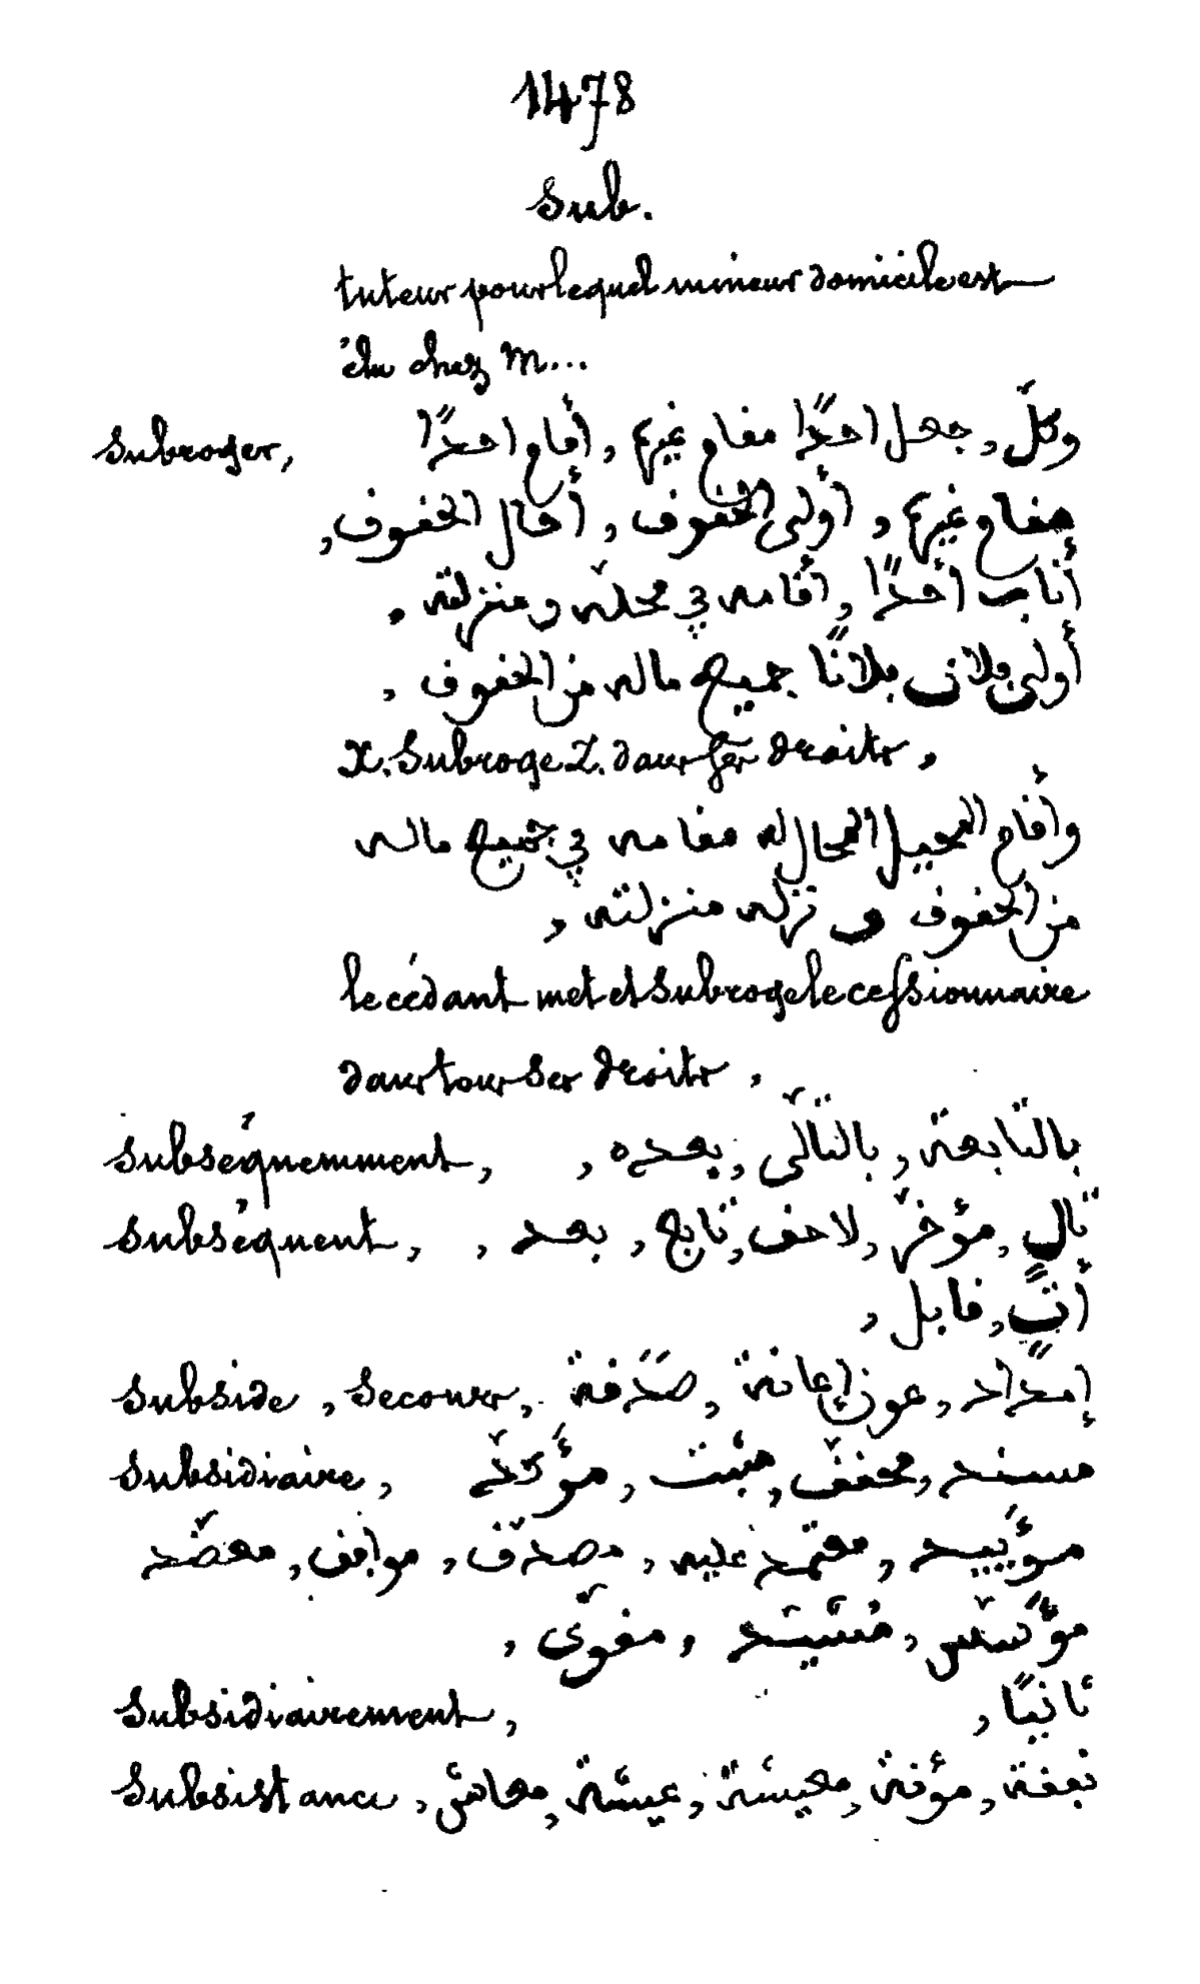 1478
Sub.
tuteur pour lequel mineur domicile est
élu chez M...
Subroger, وكّل, جعل احدًا مقام غيره, أقام احدًا
مقام غيره, أولى الحقوق, أحال الحقوق,
أناب أحدًا, أقامه في محلّه ومنزلته,
أولى فلان فلانًا جميع ماله من الحقوق,
X. Subroge Z. dans ses droits,
وأقام المحيل المحال له مقامه في جميع ماله
من الحقوق و نزله منزلته,
le cédant met et Subroge le cessionnaire
dans tous ses droits,
Subséquemment, بالتابعة, بالتّالى, بعده,
Subséquent, تالٍ, مؤخّر, لاحق, تابع, بعد,
أتٍ, قابل,
Subside, Secours, إمداد, عون, إعانة, صَدَقة
Subsidiaire, مسند, مخفّف, مثبت, مؤكّد
مؤييد, معتمد عليه, مصدّق, موافق, معضّد
مؤسّس, مُشيّد, مقوّى,
Subsidiairement, ثانيًا,
Subsistance, نفقة, مؤنة, معيشة, عيشة, معاش,